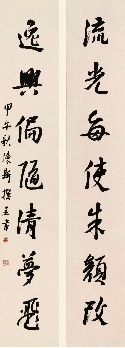 流光每使朱顏改
逸興偏隨清夢飛
甲午秋陳
撰並書